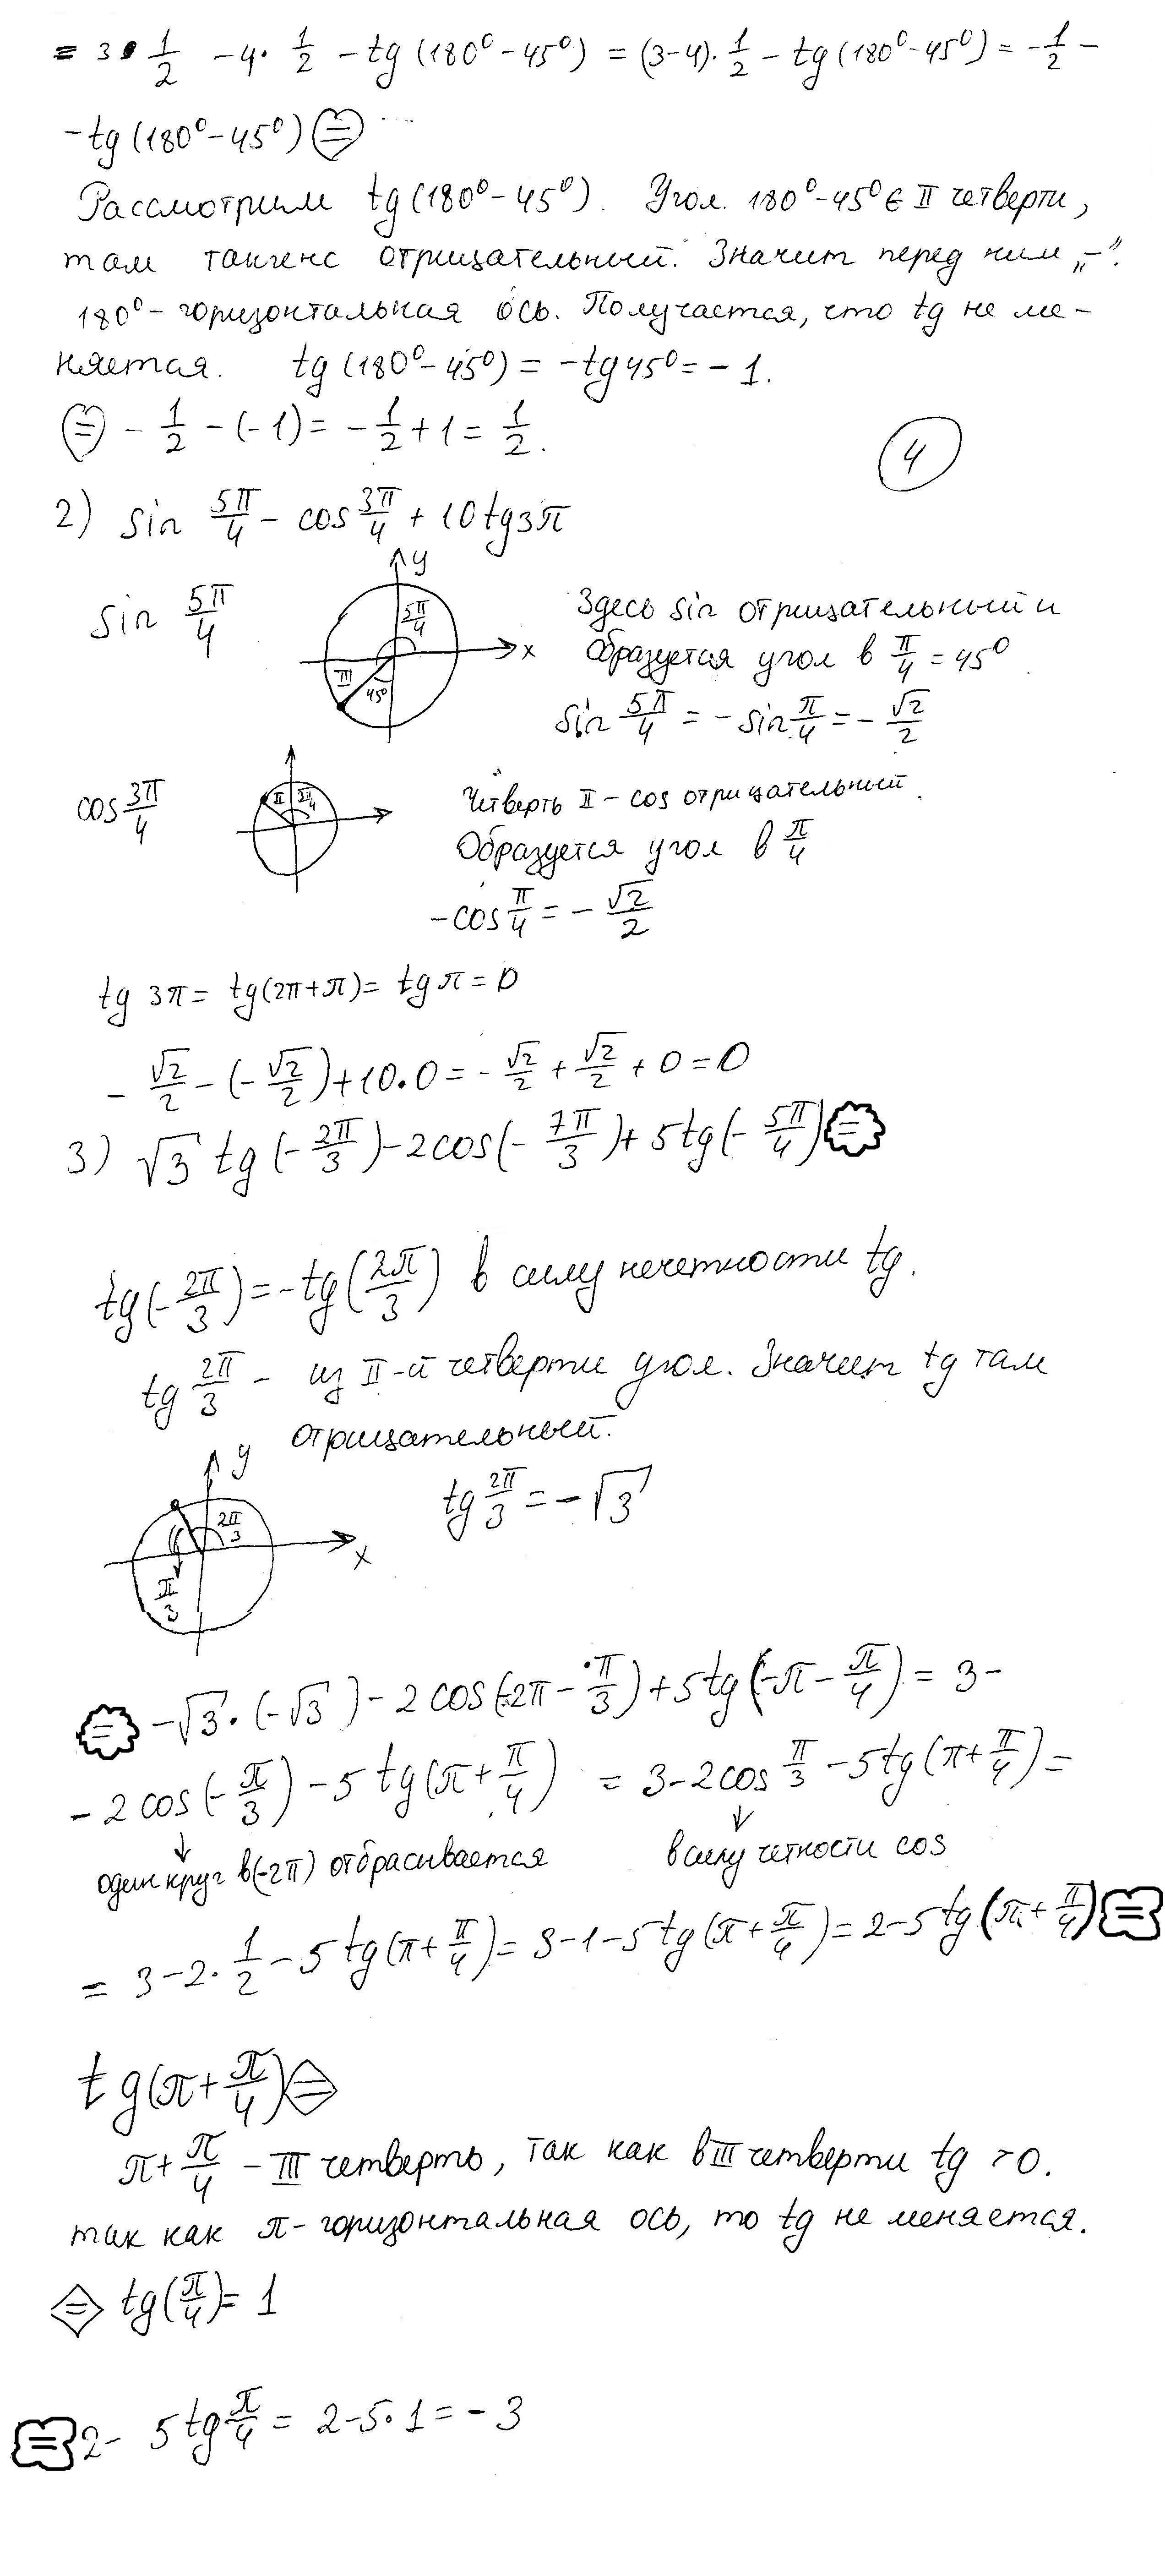 = 3 • 1/2 - 4 • 1/2 - tg (180° - 45°) = (3-4) • 1/2 - tg (180° - 45°) = - 1/2 -
- tg (180° - 45°) =
Рассмотрим tg (180° - 45°). Угол 180° - 45° ∈ II четверти,
там тангенс отрицательный. Значит перед ним „-”.
180° - горизонтальная ось. Получается, что tg не ме-
няется. tg (180° - 45°) = - tg 45° = - 1.
= - 1/2 - (-1) = - 1/2 + 1 = 1/2.
4
2) sin 5π/4 - cos 3π/4 + 10 tg 3π
sin 5π/4
y
5π/4
x
III
45°
Здесь sin отрицательный и
Образуется угол в π/4 = 45°
sin 5π/4 = - sin π/4 = - √2/2
cos 3π/4
II 3π/4
Четверть II - cos отрицательный.
Образуется угол в π/4
- cos π/4 = - √2/2
tg 3π = tg(2π+π) = tg π = 0
- √2/2 - (- √2/2) + 10 • 0 = - √2/2 + √2/2 + 0 = 0
3) √3 tg (- 2π/3) - 2 cos (- 7π/3) + 5 tg (- 5π/4) =
tg (- 2π/3) = - tg (2π/3) в силу нечетности tg.
tg 2π/3 - из II-й четверти угол. Значит tg там
отрицательный.
y
2π/3
x
π/3
tg 2π/3 = - √3
= - √3 • (- √3) - 2 cos (-2π - π/3) + 5 tg (-π - π/4) = 3 -
- 2 cos (- π/3) - 5 tg (π + π/4) = 3 - 2 cos π/3 - 5 tg (π + π/4) =
один круг в (-2π) отбрасывается в силу четности cos
= 3 - 2 • 1/2 - 5 tg (π + π/4) = 3 - 1 - 5 tg (π + π/4) = 2 - 5 tg (π + π/4) =
tg (π + π/4) =
π + π/4 - III четверть, так как в III четверти tg > 0.
так как π - горизонтальная ось, то tg не меняется.
= tg (π/4) = 1
= 2 - 5 tg π/4 = 2 - 5 • 1 = - 3